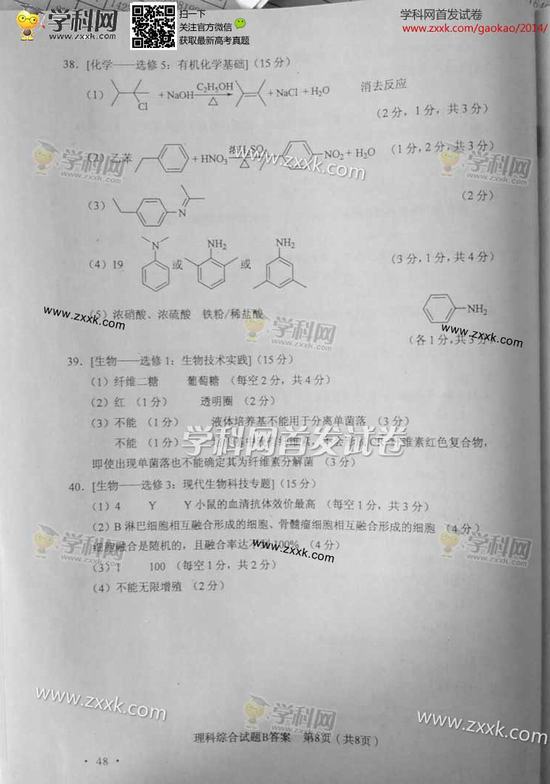 学科网
扫一下
关注官方微信
获取最新高考真题
学科网首发试卷
www.zxxk.com/gaokao/2014/
38. [化学——选修5:有机化学基础](15分)
(1) Cl +NaOH C₂H₅OH △ +NaCl+H₂O 消去反应
(2分,1分,共3分)
(2)乙苯 +HNO₃ △ NO₂+H₂O (1分,2分,共3分)
(2分)
(3) N
(4)19 N 或 NH₂ 或 NH₂ (3分,1分,共4分)
(5)浓硝酸、浓硫酸 铁粉/稀盐酸 NH₂
(各1分,共3分)
39. [生物——选修1:生物技术实践](15分)
(1)纤维二糖 葡萄糖 (每空2分,共4分)
(2)红 (1分) 透明圈 (2分)
(3)不能 (1分) 液体培养基不能用于分离单菌落 (3分)
不能 (1分) 维素红色复合物,
即使出现单菌落也不能确定其为纤维素分解菌 (3分)
40. [生物——选修3:现代生物科技专题](15分)
(1)4 Y Y小鼠的血清抗体效价最高 (每空1分,共3分)
(2)B淋巴细胞相互融合形成的细胞、骨髓瘤细胞相互融合形成的细胞 (4分)
细胞融合是随机的,且融合率达不到100% (4分)
(3)1 100 (每空1分,共2分)
(4)不能无限增殖 (2分)
理科综合试题B答案 第8页(共8页)
· 48 ·
学科网
www.zxxk.com
www.zxxk.com
学科网
学科网
www.zxxk.com
学科网首发试卷
学科网
www.zxxk.com
学科网
www.zxxk.com
学科网
www.zxxk.com